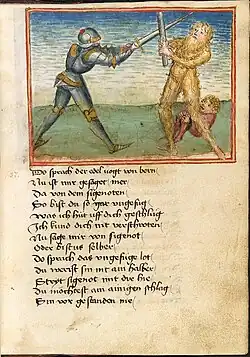 Do sprach der edel vogt von bern
Nu ist mir gesaget mer
Da von dem sigenoten
So bist du so gar ungefüg
Was ich hüt uff dich geschlüg
Ich kund dich nit verschroten
Nu sage mir von sigenot
Oder bistus selber
Do sprach das ungefüge lot
Du werist sin nit am halber
Strit sigenot mit dir hie
Du möchtest am ainigen schlag
Im vor gestanden nie